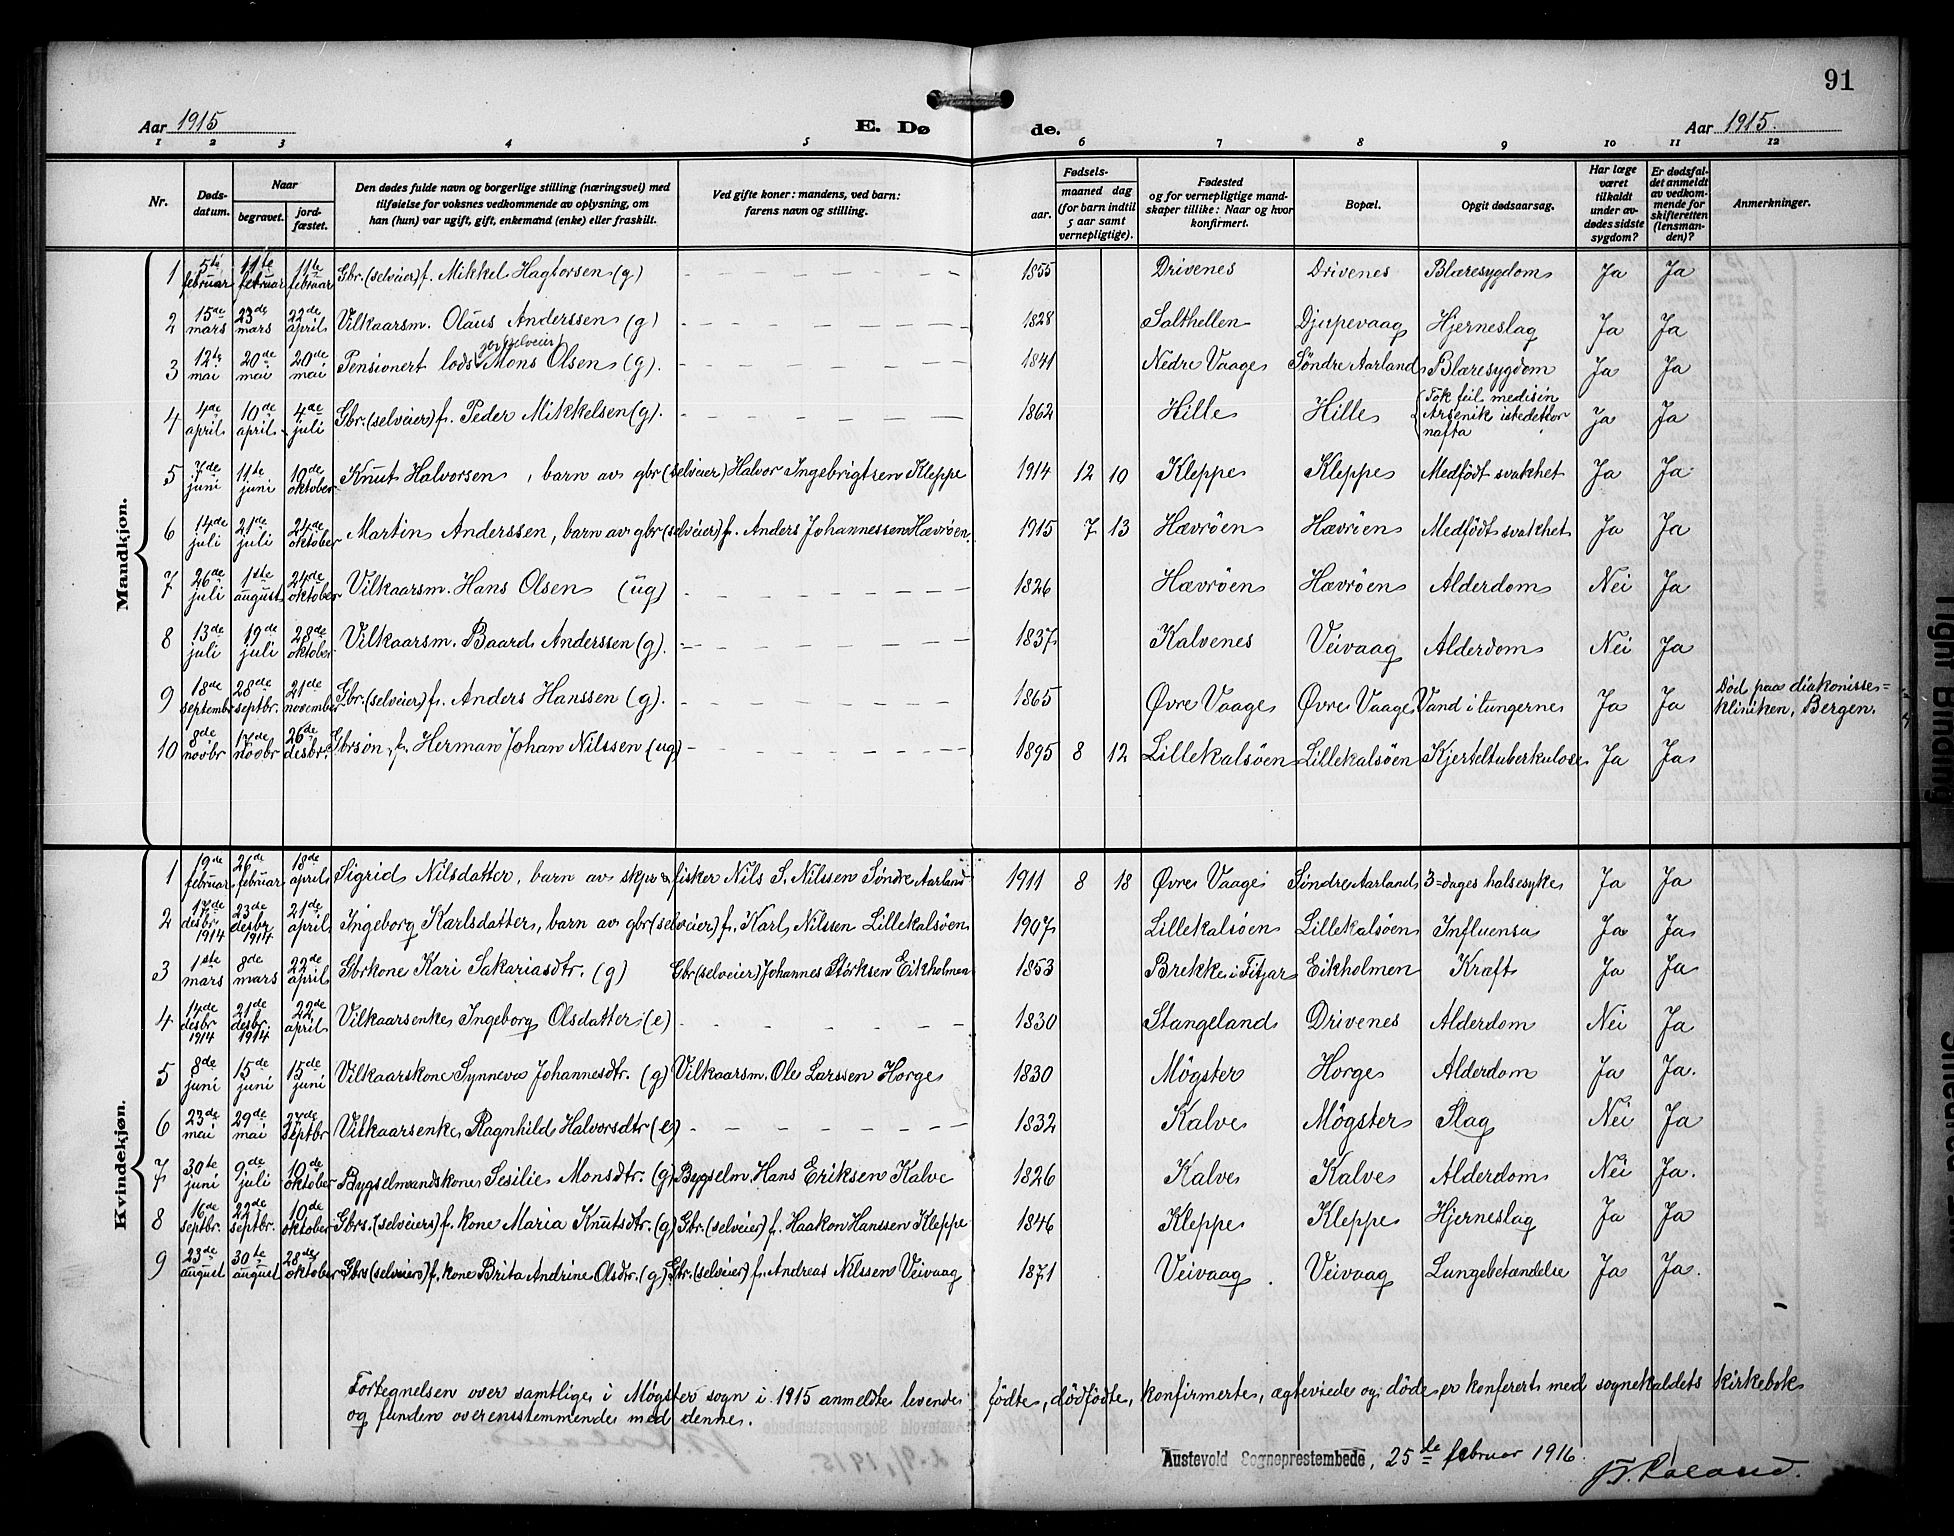 91
Aar 1915 E. Dø de. Aar 1915.
1 2 3 4 5 6 7 8 9 10 11 12
Nr. Dødsdatum. Naar begravet. jordfæstet. Den dødes fulde navn og borgerlige stilling (næringsvei) med tilføielse for voksnes vedkommende av oplysning, om han (hun) var ugift, gift, enkemand (enke) eller fraskilt. Ved gifte koner: mandens, ved barn: farens navn og stilling. Fødsels- aar. maaned dag (for barn indtil 5 aar samt vernepligtige). Fødested og for vernepligtige mandskaper tillike: Naar og hvor konfirmert. Bopæl. Opgit dødsaarsag. Har læge været tilkaldt under avdødes sidste sygdom? Er dødsfaldet anmeldt av vedkommende for skifteretten (lensmanden)? Anmerkninger.
Mandkjøn.
1 5te februar 11te februar 11te februar Gbr. (selveier) f. Mikkel Hagtorsen (g) 1855 Drivenes Drivenes Blæresygdom Ja Ja
2 15de mars 23de mars 22de april Vilkaarsm. Olaus Anderssen (g) 1828 Salthellen Djupevaag Hjerneslag Ja Ja
3 12te mai 20de mai 20de mai Pensionert lods Mons Olsen (g). 1841 Nedre Vaage Søndre Aarland Blæresygdom Ja Ja
4 4de april 10de april 4de juli Gbr. (selveier) f. Peder Mikkelsen (g). 1862 Hille Hille Tok feil medisin Arsenik istedetfor nafta Ja Ja
5 7de juni 11te juni 10de oktober Knut Halvorsen, barn av gbr (selveier) Halvor Ingebrigtsen Kleppe 1914 12 10 Kleppe Kleppe Medfødt svakhet Ja Ja
6 14de juli 21de juli 24de oktober Martin Anderssen, barn av gbr (selveier) f. Anders Johannessen Hævröen. 1915 7 13 Hævröen Hævröen Medfödt svakhet Ja Ja
7 26de juli 1ste august 24de oktober Vilkaarsm. Hans Olsen (ug) 1826 Hævröen Hævröen Alderdom Nei Ja
8 13de juli 19de juli 28de oktober Vilkaarsm. Baard Anderssen (g). 1837 Kalvenes Veivaag Alderdom Nei Ja
9 18de septembr 28de septbr. 21de november Gbr. (selveier) f. Anders Hanssen (g). 1865 Øvre Vaage Øvre Vaage Vand i lungerne Ja Ja Död paa diakonisse= kliniken, Bergen.
10 8de novbr 17de novbr 26de desbr. Gbrsøn f. Herman Johan Nilssen (ug) 1895 8 12 Lillekalsöen Lillekalsöen Kjerteltuberkulose Ja Ja
Kvindekjøn.
1 19de februar 26de februar 18de april Sigrid Nilsdatter, barn av skpr & fisker Nils S. Nilssen Søndre Aarland 1911 8 18 Øvre Vaage Søndre Aarland 3=dages halsesyke Ja Ja
2 17de desbr. 1914 23de desbr 1914 21de april Ingeborg Karlsdatter, barn av gbr (selveier) f. Karl Nilssen Lillekalsöen 1907 Lillekalsöen Lillekalsöen Influensa Ja Ja
3 1ste mars 8de mars 22de april Gbrkone Kari Sakariasdtr. (g) Gbr (selveier) Johannes Störksen Eikholmen 1853 Brekke i Fitjar Eikholmen Kræft Ja Ja
4 14de desbr 1914 21de desbr. 1914 22de april Vilkaarsenke Ingeborg Olsdatter (e) 1830 Stangeland Drivenes Alderdom Nei Ja
5 8de juni 15de juni 15de juni Vilkaarskone Synneva Johannesdtr. (g) Vilkaarsm. Ole Larssen Horge 1830 Møgster Horge Alderdom Ja Ja.
6 23de mai 29de mai 27de septbr Vilkaarsenke Ragnhild Halvorsdtr (e) 1832 Kalve Møgster Slag Nei Ja
7 30te juni 9de juli 10de oktober Bygselmandskone Sesilie Monsdtr. (g) Bygselm. Hans Eriksen Kalve 1826 Kalve Kalve Alderdom Nei Ja.
8 16de septbr. 22de septbr. 10de oktober Gbrs. (selveiers) f. kone Maria Knutsdtr. (g) Gbr. (selveier) f. Haakon Hanssen Kleppe 1846 Kleppe Kleppe Hjerneslag Ja Ja
9 23de august 30te august 28de oktober Gbrs (selveiers) f. kone Brita Andrine Olsdtr. (g) Gbr. (selveier) f. Andreas Nilssen Veivaag 1871 Veivaag Veivaag Lungebetændelse Ja Ja.
Fortegnelsen over samtlige i Møgster sogn i 1915 anmeldte levende fødte, dødfødte, konfirmerte, egteviede og døde er konferert med sognekaldets kirkebok
og funden overensstemmende med denne.
Austevold Sogneprestembede, 25de februar 1916.